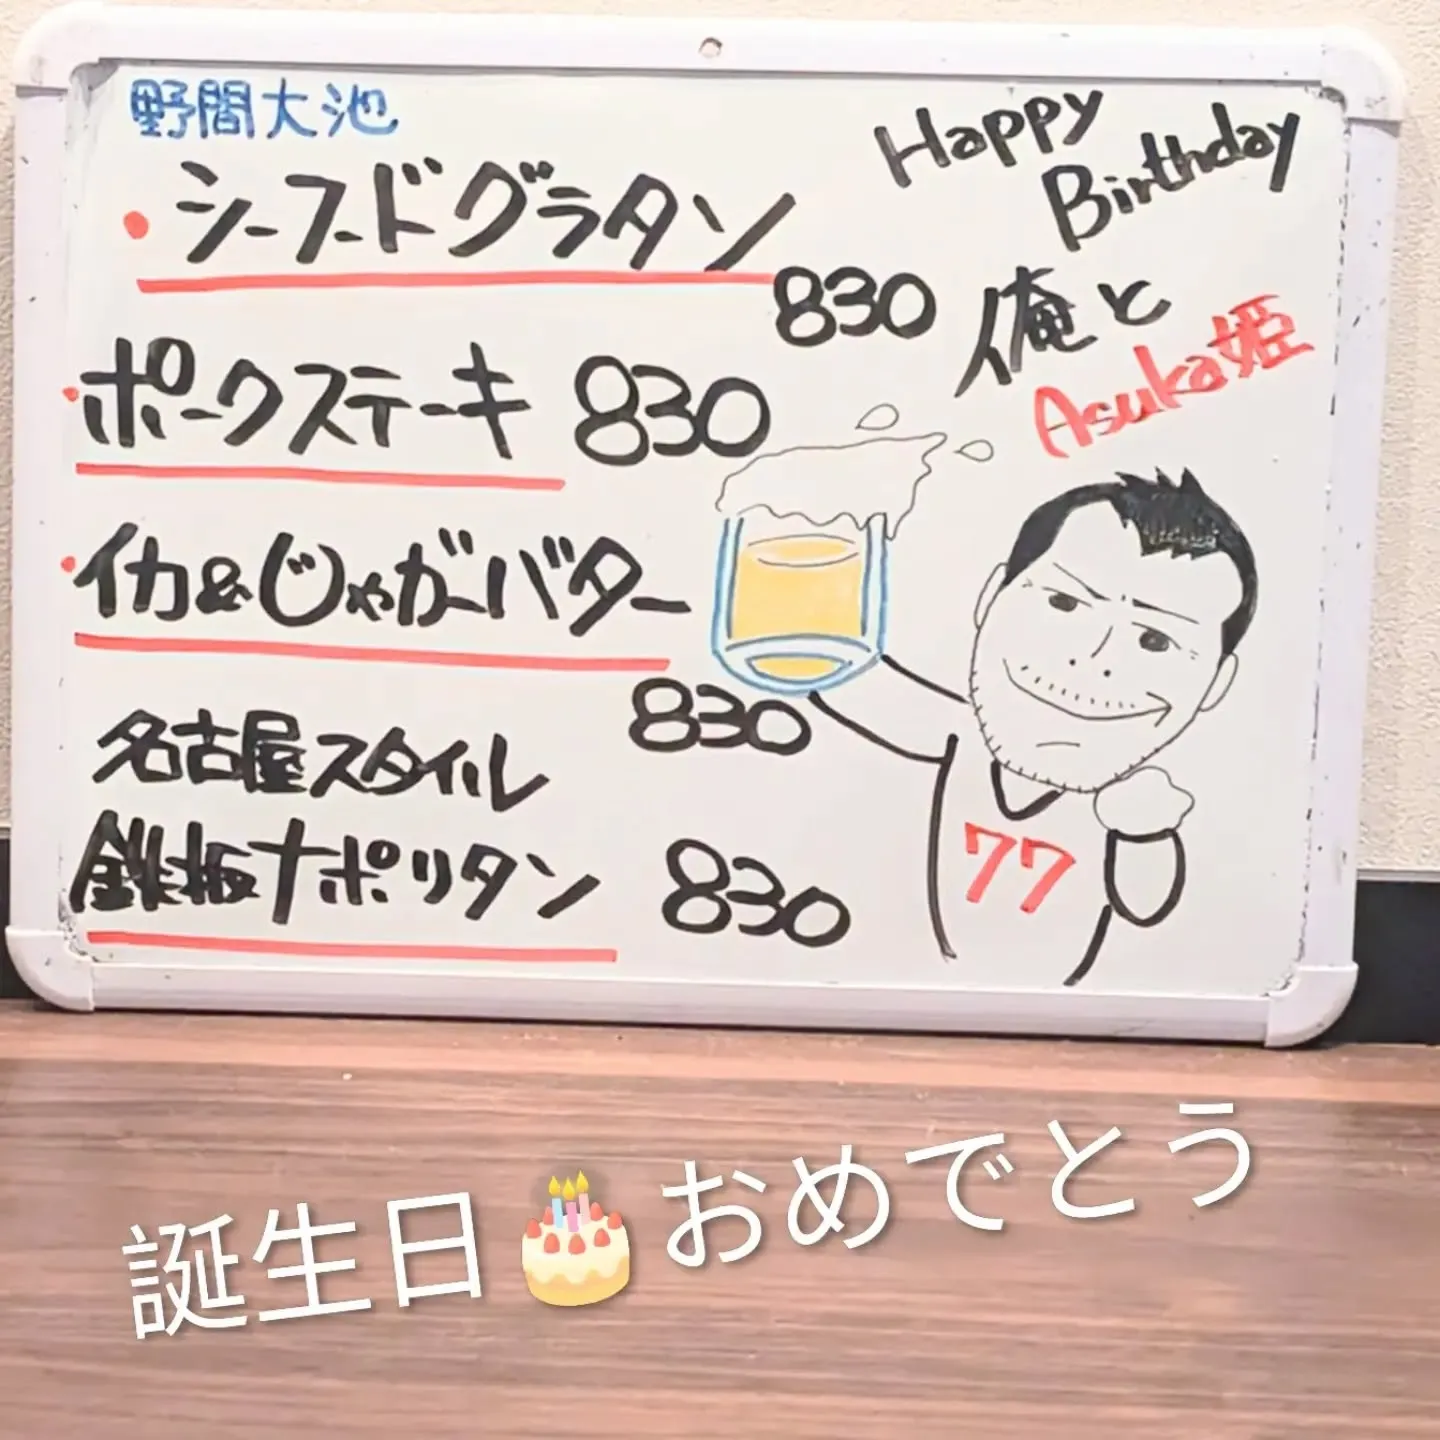 野間大池
・シーフードグラタン
830
・ポークステーキ 830
・イカ&じゃがーバター
830
名古屋スタイル
鉄板ナポリタン 830
Happy
Birthday
俺と
Asuka姫
77
誕生日🎂おめでとう